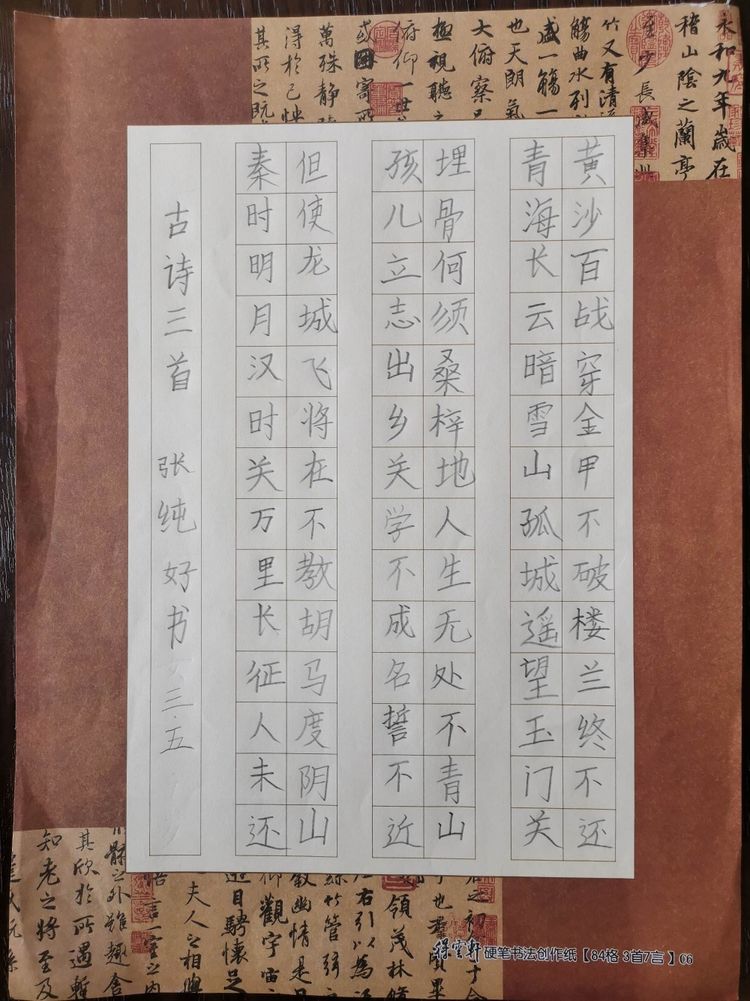 永和九年歲在
稽山陰之蘭亭
少長咸集
竹又有清
觴曲水列
盛一觴一
也天朗氣
大俯察
極視聽
俯仰一世
或因寄所
萬殊靜
得於己怏
其所之既
黄沙百战穿金甲不破楼兰终不还
青海长云暗雪山孤城遥望玉门关
埋骨何须桑梓地人生无处不青山
孩儿立志出乡关学不成名誓不近
但使龙城飞将在不教胡马度阴山
秦时明月汉时关万里长征人未还
古诗三首 张纯好书 三.五
之初
也群
領茂林修
右引以為
絲竹管弦
敘幽情是
仰觀宇宙
遊目騁懷足
夫人之相與
悟言一室之
骸之外雖趣舍
其欣於所遇暫
知老之將至及
得雲軒硬笔书法创作纸【84格 3首7言】06